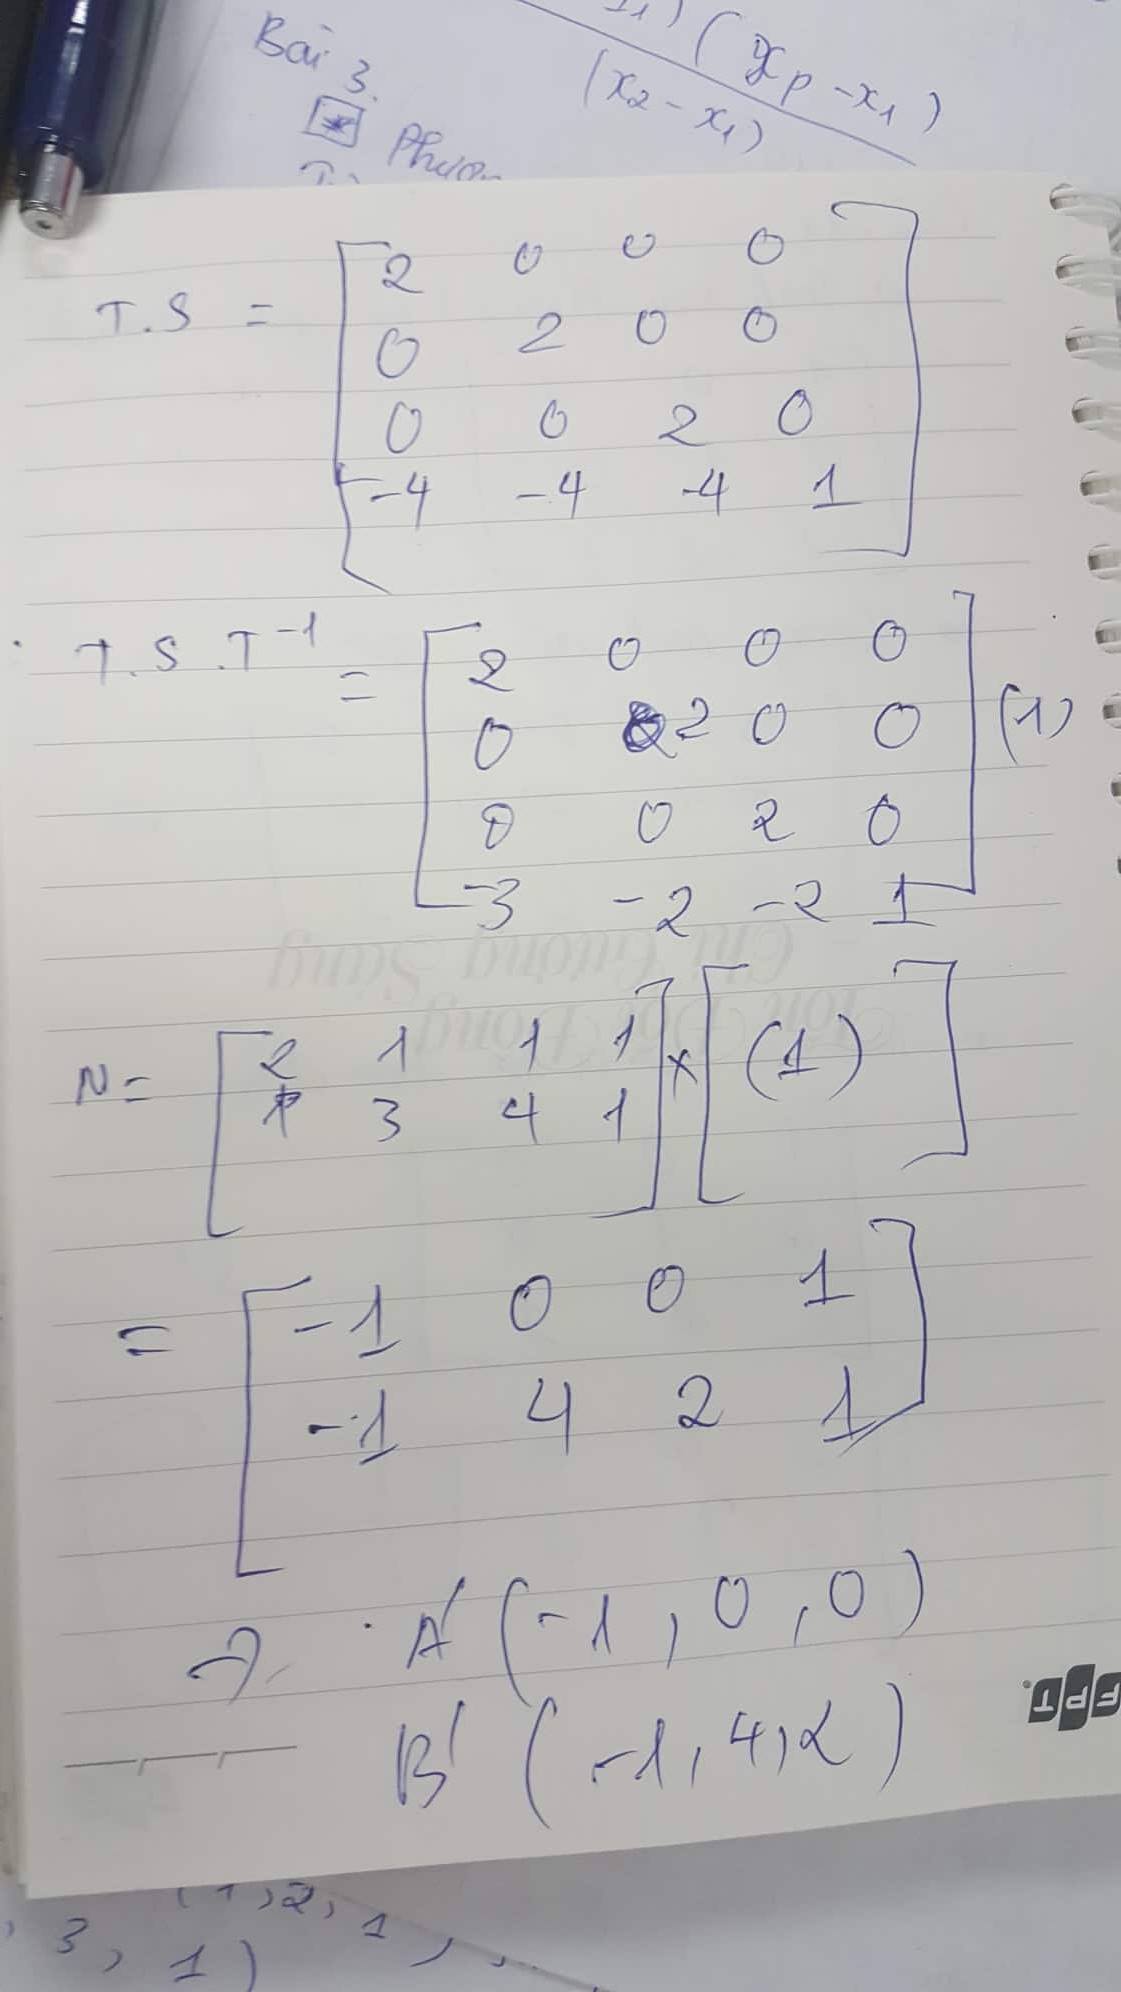 Bài 3.
(xp - x1)
(x2 - x1)
T.S = [2 0 0 0
0 2 0 0
0 0 2 0
-4 -4 -4 1]
T.S.T⁻¹ = [2 0 0 0
0 2 0 0
0 0 2 0
-3 -2 -2 1] (1)
N = [2 1 1 1
1 3 4 1] x [(1)]
= [-1 0 0 1
-1 4 2 1]
→ A' (-1, 0, 0)
B' (-1, 4, 2)
FPT
(1, 2, 1,
, 3, 1)